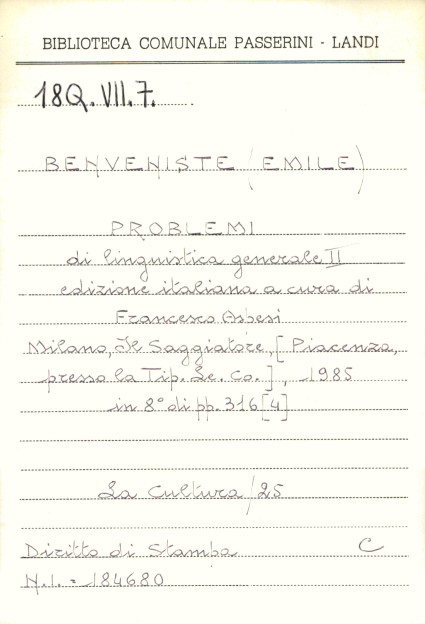 BIBLIOTECA COMUNALE PASSERINI - LANDI
18Q. VII. 7.
BENVENISTE (EMILE)
PROBLEMI
di linguistica generale II
edizione italiana a cura di
Francesco Aspesi
Milano, Il Saggiatore, [Piacenza,
presso la Tip. Le. Co.], 1985
in 8° di pp. 316 [4]
La Cultura / 25
Diritto di Stampa C
N.I. = 184680